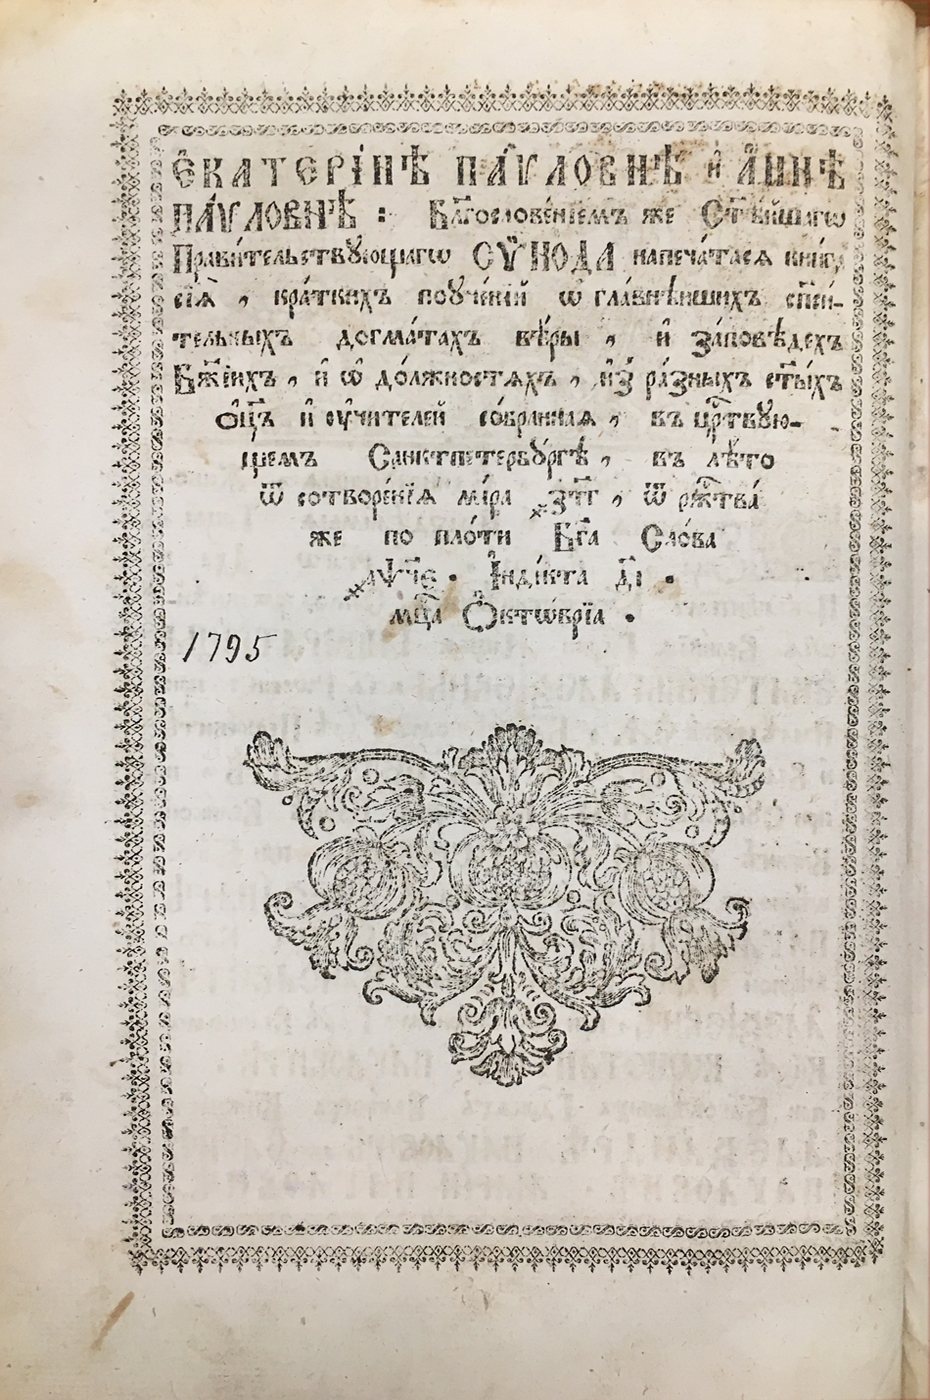 Є҆КАТЕРІ́НѢ ПА́ѴЛОВНѢ и҆ А҆́ННѢ
ПА́ѴЛОВНѢ : Бл҃гослове́нїемъ же Ст҃ѣ́йшагѡ
Прави́тельствꙋющагѡ СѴНО́ДА напеча́тася кни́га
сїѧ̀ , кра́ткихъ поꙋче́нїй ѡ҆ гла́внѣйшихъ сп҃си́-
тельныхъ догма́тахъ вѣ́ры , и҆ за́повѣдехъ
Бж҃їихъ , и҆ ѡ҆ до́лжностяхъ , и҆з̾ ра́зныхъ ст҃ы́хъ
о҆ц҃ъ и҆ ᲂу҆чи́телей со́бранная , въ црⷭ҇твꙋю-
щемъ Санктпетербꙋ́ргѣ , въ лѣ́то
ѿ сотворе́нїѧ мі́ра ҂зт҃г , ѿ ржⷭ҇тва́
же по пло́ти Бг҃а Сло́ва
҂аѱ҃че • І҆ндї́кта д҃і •
мцⷭ҇а Ѻ҆ктѡ́врїа •
1795